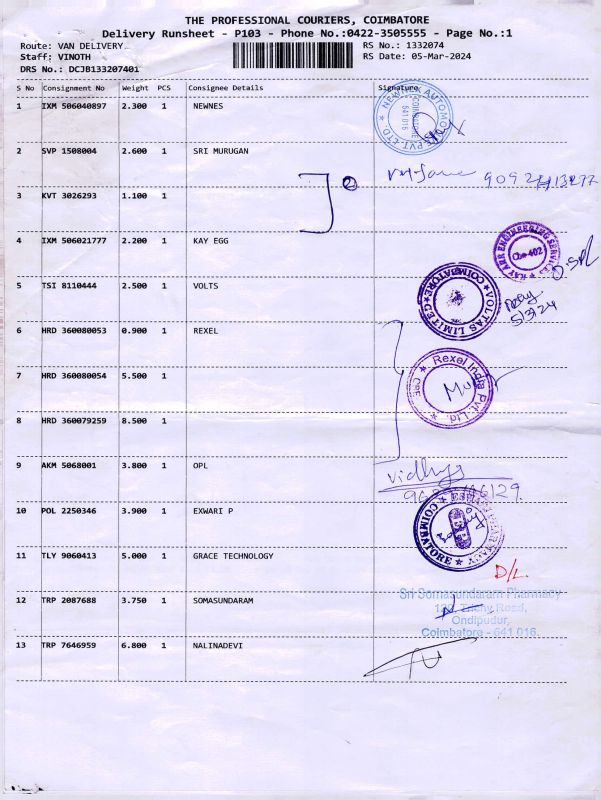 THE PROFESSIONAL COURIERS, COIMBATORE
Delivery Runsheet - P103 - Phone No.:0422-3505555 - Page No.:1
Route: VAN DELIVERY RS No.: 1332074
Staff: VINOTH RS Date: 05-Mar-2024
DRS No.: DCJB133207401
S No Consignment No Weight PCS Consignee Details Signature
1 IXM 506040897 2.300 1 NEWNES
COIMBATORE
641 015
PVT. LTD.
2 SVP 1508004 2.600 1 SRI MURUGAN
3 KVT 3026293 1.100 1
4 IXM 506021777 2.200 1 KAY EGG
KAY ARR ENGINEERING SERVICES
Cbe-402
5 TSI 8110444 2.500 1 VOLTS
VOLTAS LIMITED
COIMBATORE
5/3/24
6 HRD 360080053 0.900 1 REXEL
7 HRD 360080054 5.500 1
Rexel India Pvt. Ltd.
CBE
8 HRD 360079259 8.500 1
9 AKM 5068001 3.800 1 OPL
Vidhya
10 POL 2250346 3.900 1 EXWARI P
COIMBATORE
11 TLY 9060413 5.000 1 GRACE TECHNOLOGY
D/L.
12 TRP 2087688 3.750 1 SOMASUNDARAM
Sri Somasundaram Pharmacy
Trichy Road,
Ondipudur,
Coimbatore - 641 016.
13 TRP 7646959 6.800 1 NALINADEVI